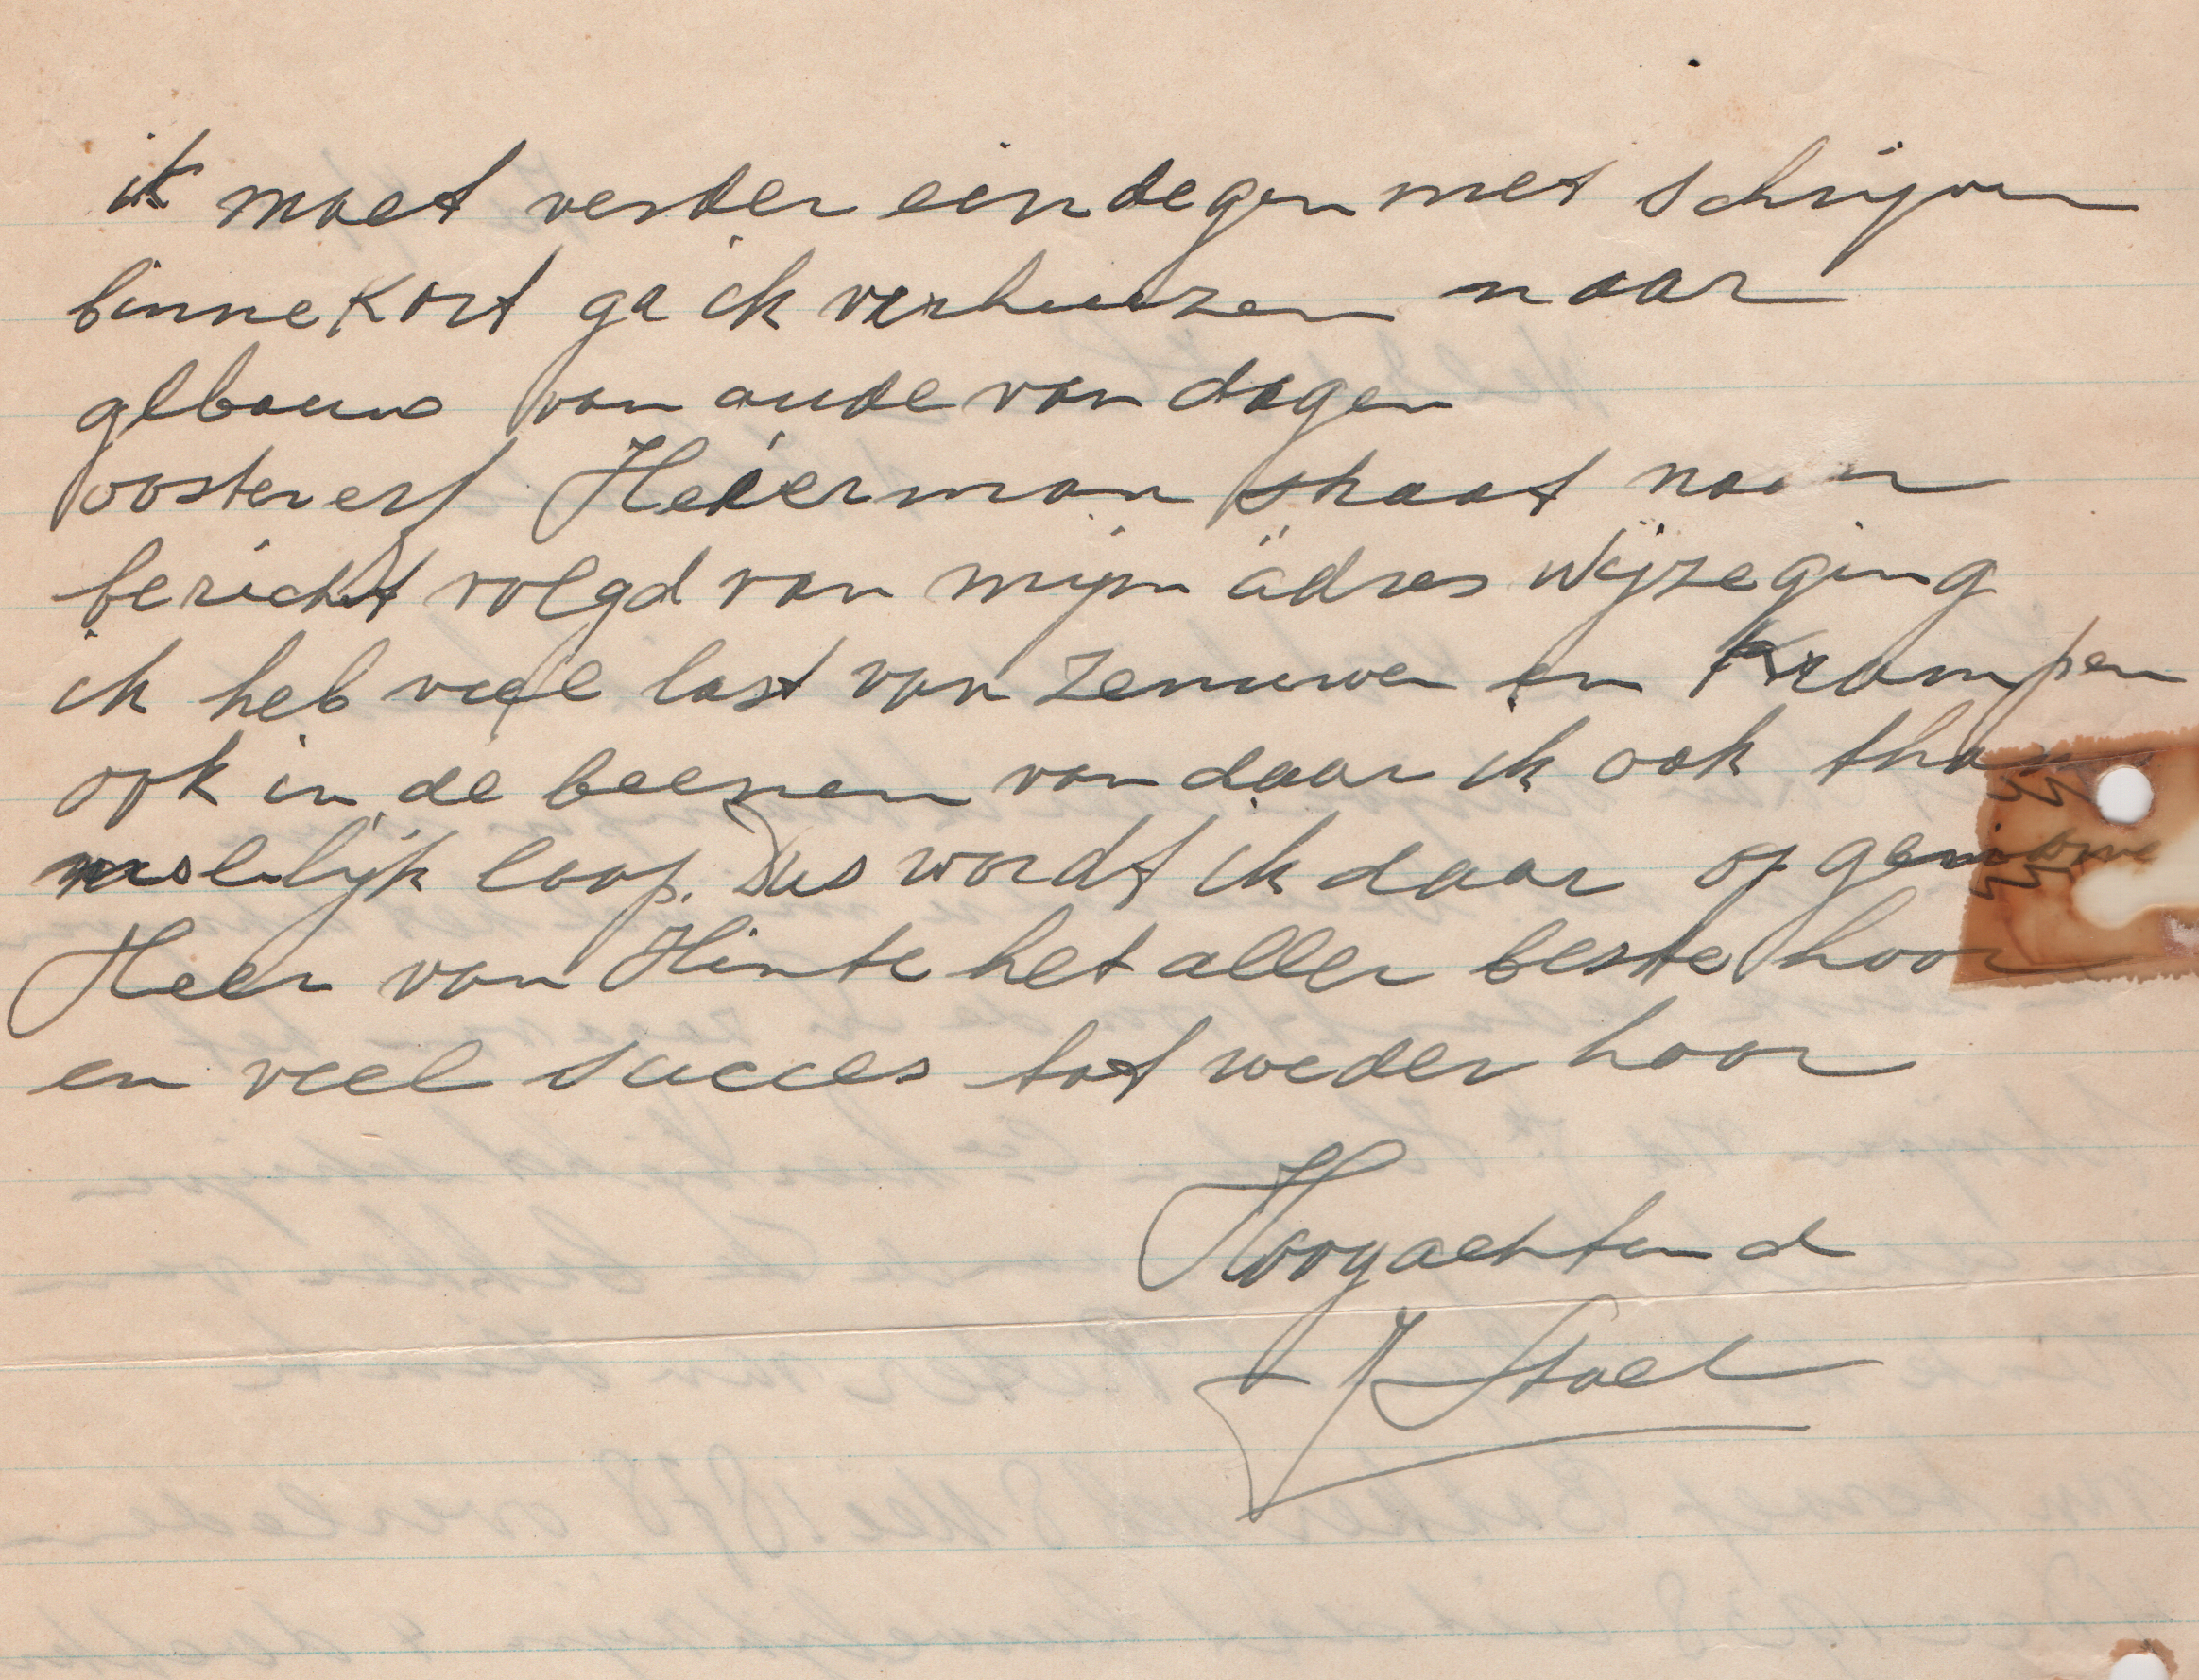 ik moet verder eindegen met schrijven
binnekort ga ik verhuizen naar
gebouw van oude van dagen
oostererf Heierman straat naar
bericht volgd van mijn adres wijzeging
ik heb veel last van zenuwen en Krampen
ook in de beenen van daar ik ook
loop. Dus wordt ik daar op genomen
Heer van Hinte het aller beste hoor
en veel succes tot weder hoor
Hoogachtend
J Stoel